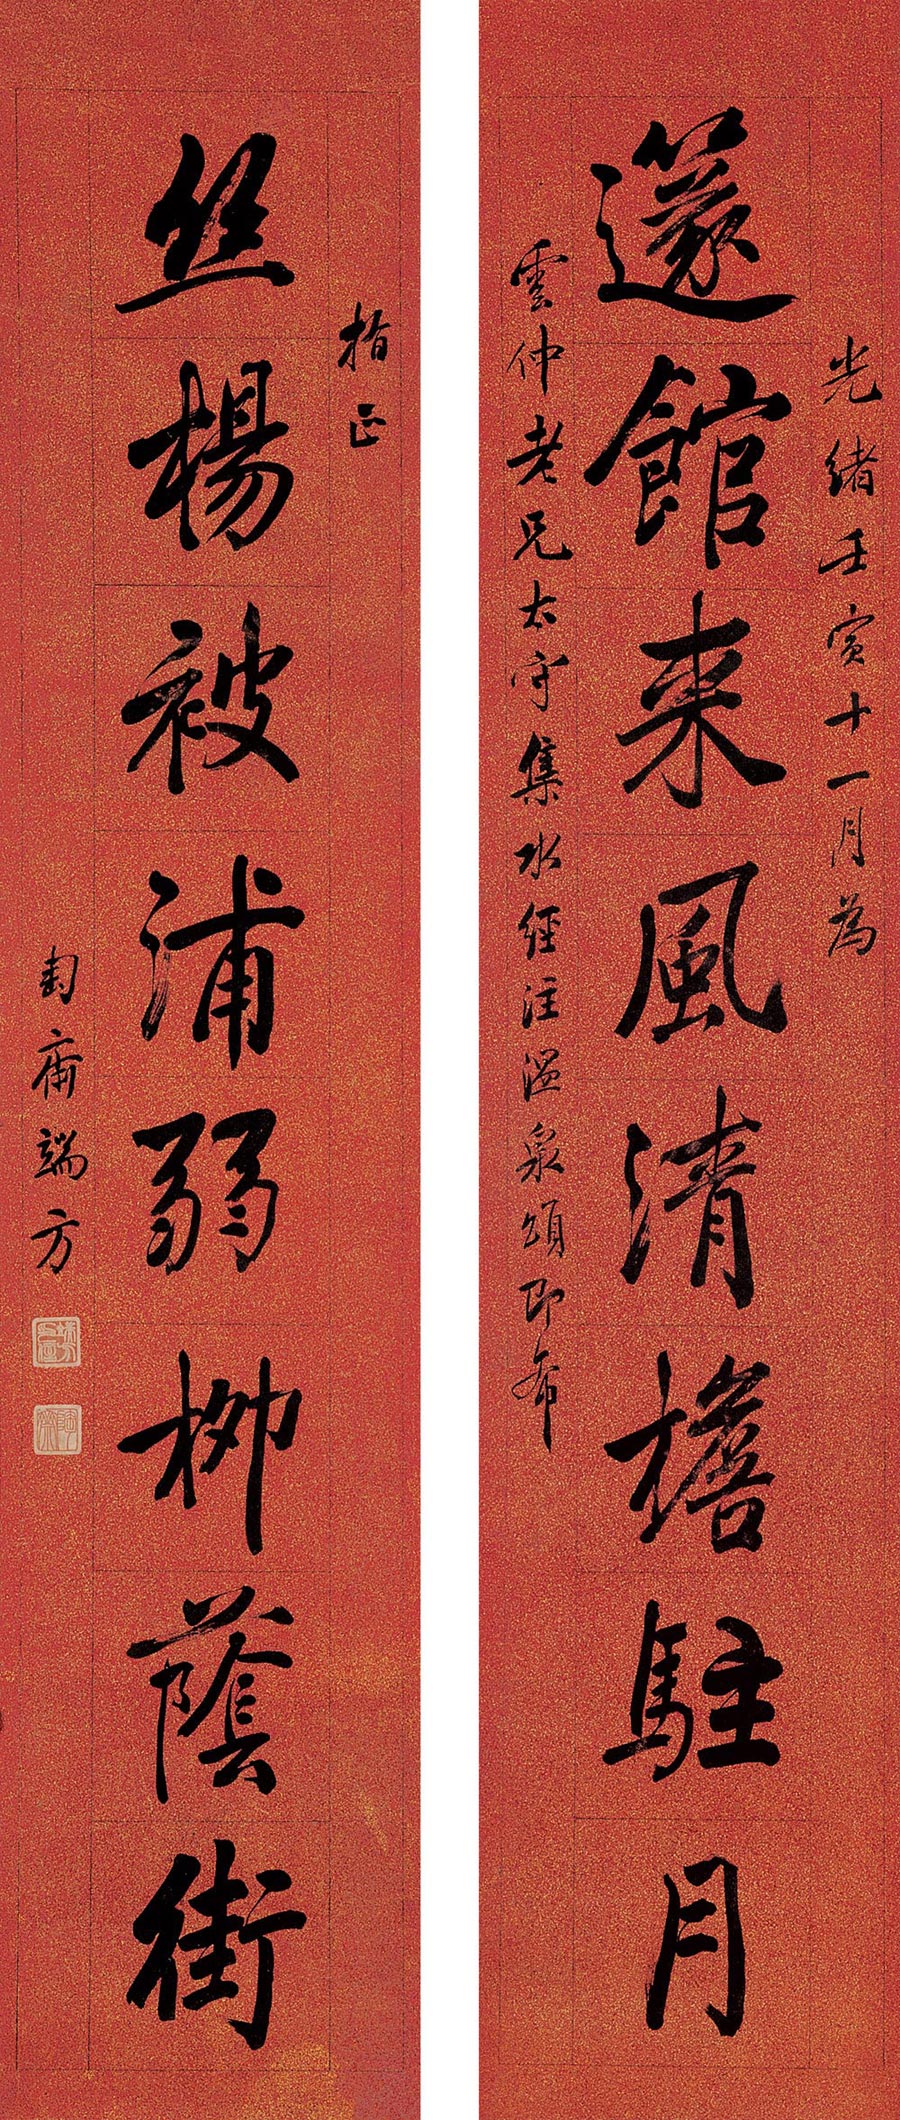 光緒壬寅十一月為
邃館来風清檐駐月
雲仲老兄太守集水經注温泉頌即希
指正
丝楊被浦弱柳蔭街
匋齋端方
陶齋